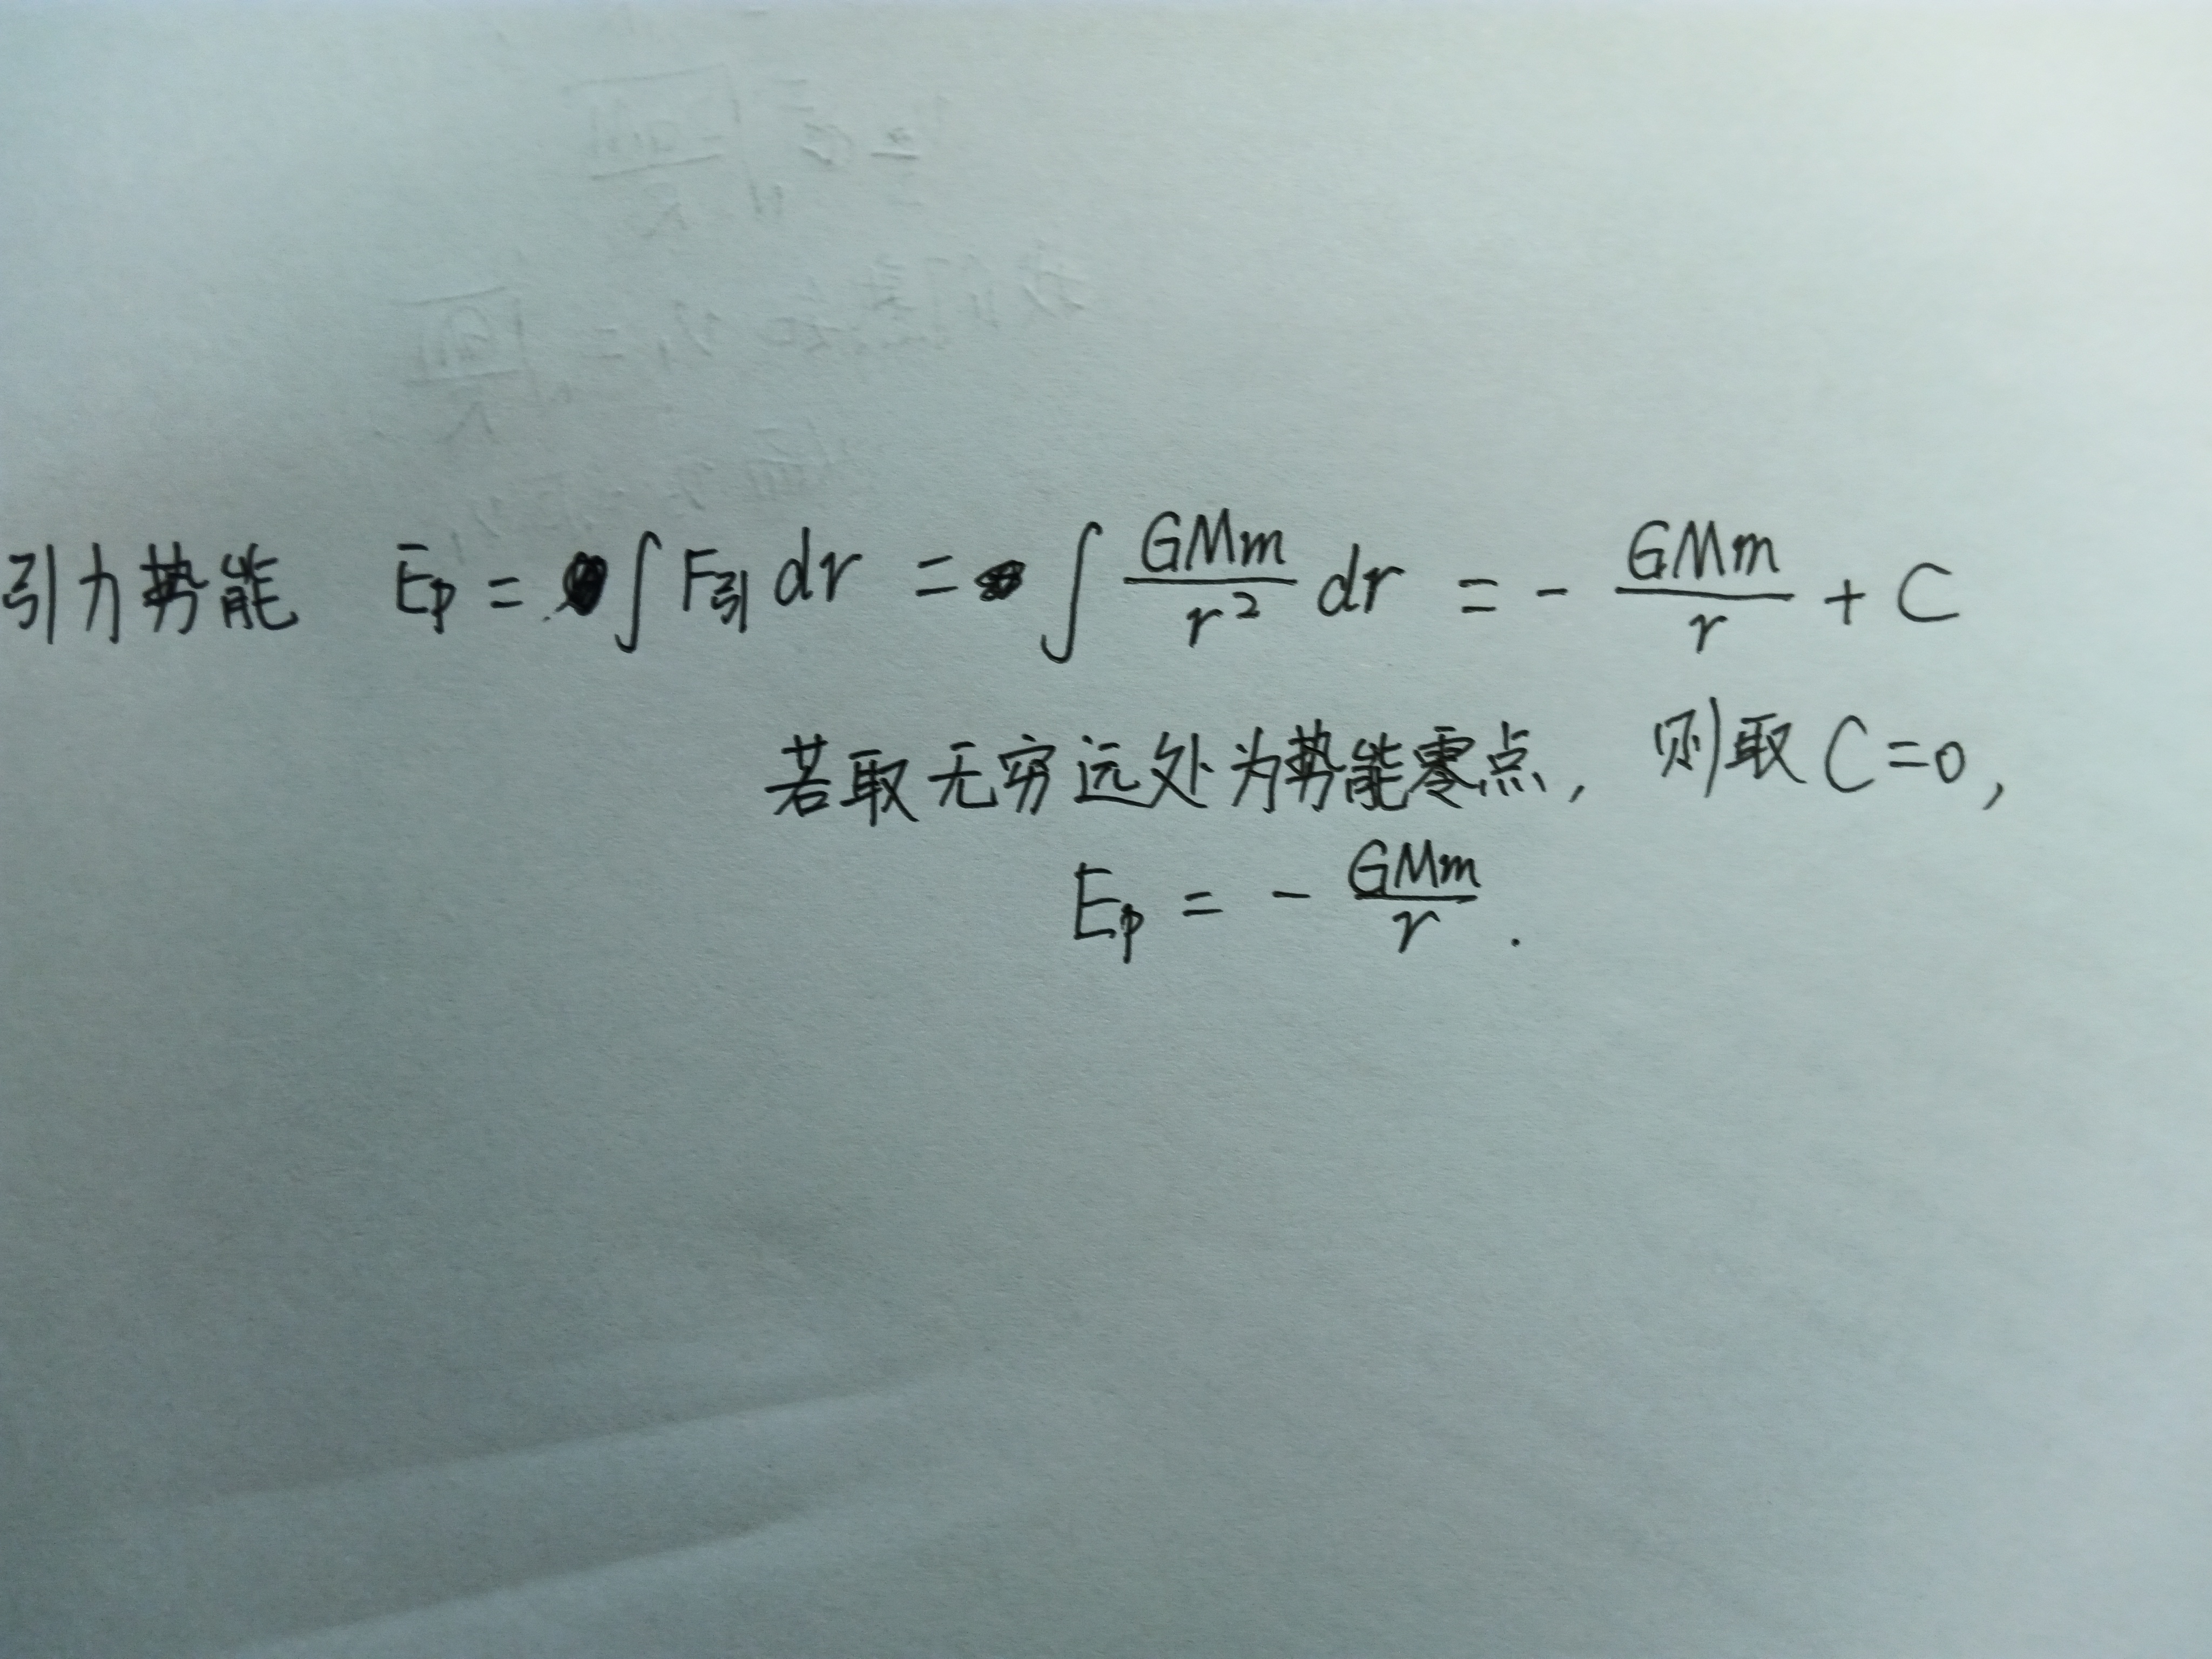 引力势能 Ep = ∫ F引 dr = ∫ GMm/r² dr = - GMm/r + C
若取无穷远处为势能零点, 则取 C=0,
Ep = - GMm/r .